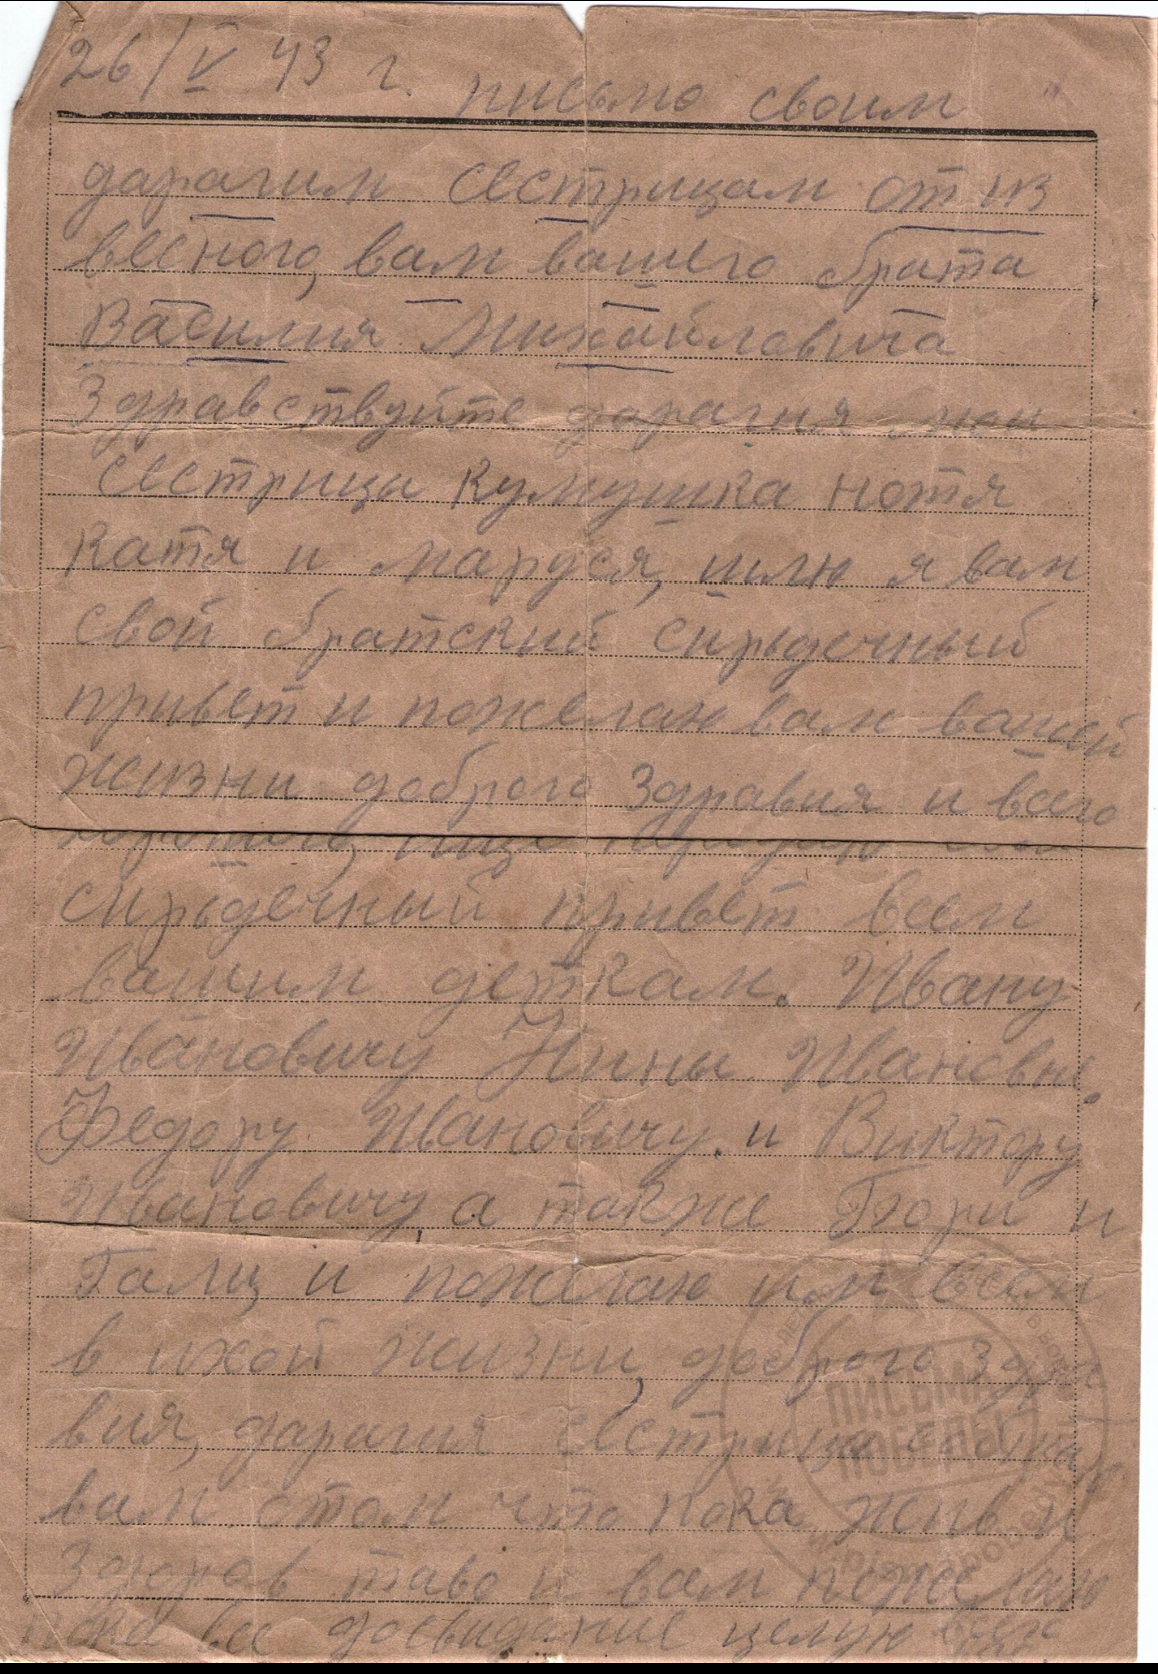 26/V 43 г. письмо своим
дарагим сестрицам от из
весного, вам вашего брата
Василия Михайловича
Здравствуйте дарагия мои
сестрицы кумушка нотя
катя и маруся, шлю я вам
свой братский сирьдечный
привет и пожелаю вам вашей
жизни доброго здравия и всего
хорошего, ище передаю
сирьдечный привет всем
вашим деткам. Ивану
Ивановичу Нины Ивановне.
Федору Ивановичу. и Виктору
Ивановичу, а также Бори и
Гали, и пожелаю им всем
в ихой жизни, доброго здра
вия, дарагия сестрицы
вам отом что пока жив и
здоров таво и вам пожелаю
пока все досвидание целую всех
ПИСЬМА
ПОБЕДЫ